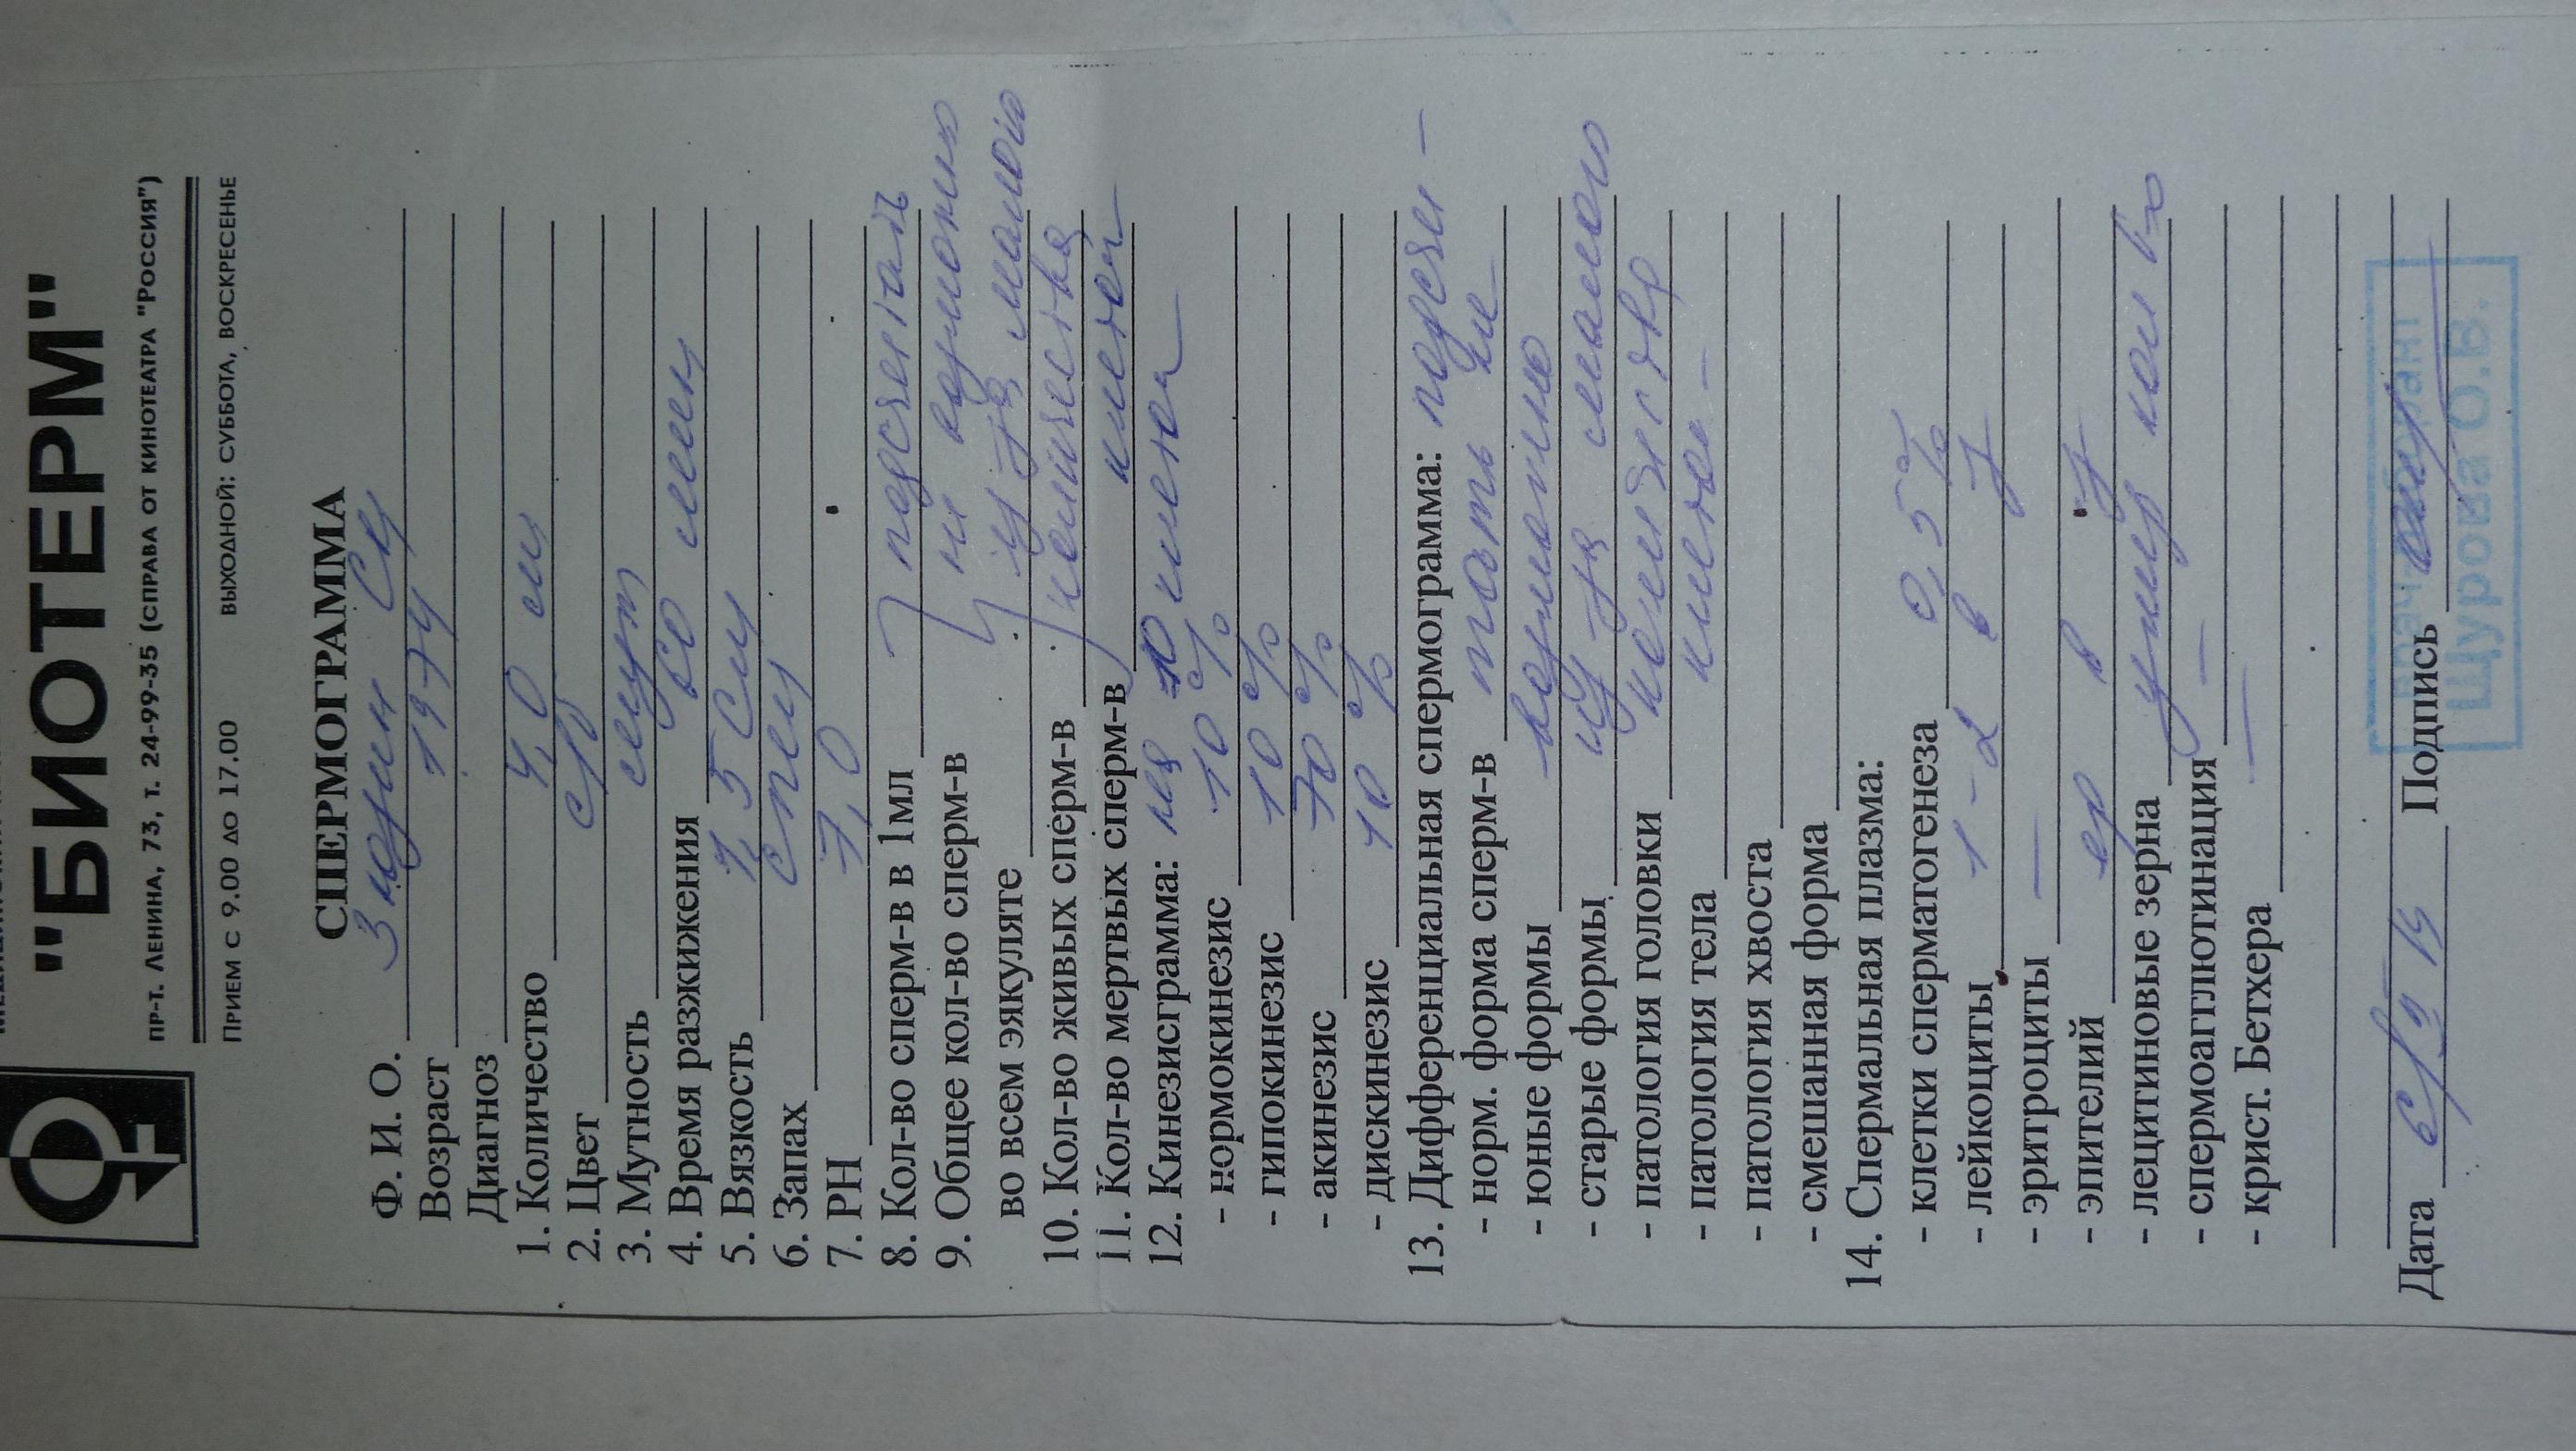 "БИОТЕРМ"
ПР-Т. ЛЕНИНА, 73, т. 24-99-35 (СПРАВА ОТ КИНОТЕАТРА "РОССИЯ")
ПРИЕМ С 9.00 ДО 17.00 ВЫХОДНОЙ: СУББОТА, ВОСКРЕСЕНЬЕ
СПЕРМОГРАММА
Ф. И. О.
Возраст 1974
Диагноз
1. Количество 4,0 мл
2. Цвет
3. Мутность мут
4. Время разжижения 60 мин
5. Вязкость 1,5 см
6. Запах спец
7. РН 7,0
8. Кол-во сперм-в в 1мл подсчитать
9. Общее кол-во сперм-в не возможно
во всем эякуляте из-за малого
10. Кол-во живых сперм-в количества
11. Кол-во мертвых сперм-в клеток
12. Кинезисграмма: на 10 клеток
- нормокинезис 10 %
- гипокинезис 10 %
- акинезис 70 %
- дискинезис 10 %
13. Дифференциальная спермограмма: подсчи-
- норм. форма сперм-в тать не
- юные формы возможно
- старые формы из-за малого
- патология головки количества
- патология тела клеток
- патология хвоста
- смешанная форма
14. Спермальная плазма:
- клетки сперматогенеза 0,5 %
- лейкоциты 1-2 в
- эритроциты —
- эпителий ед в
- лецитиновые зерна умер кол-во
- спермоагглютинация —
- крист. Бетхера —
Дата Подпись
Врач лаборант
Щурова О.В.